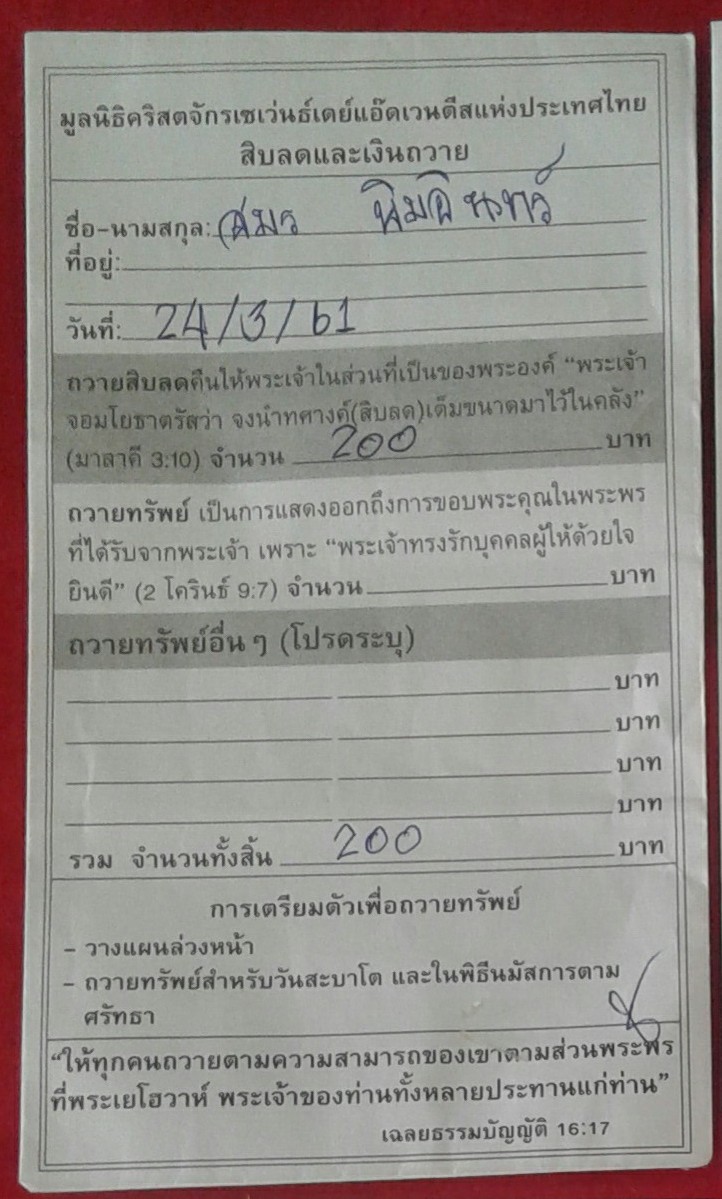 มูลนิธิคริสตจักรเซเว่นธ์เดย์แอ๊ดเวนตีสแห่งประเทศไทย
สิบลดและเงินถวาย
ชื่อ-นามสกุล: สมร นิมอินทร์
ที่อยู่:
วันที่: 24/3/61
ถวายสิบลดคืนให้พระเจ้าในส่วนที่เป็นของพระองค์ “พระเจ้า
จอมโยธาตรัสว่า จงนำทศางค์(สิบลด)เต็มขนาดมาไว้ในคลัง”
(มาลาคี 3:10) จำนวน 200 บาท
ถวายทรัพย์ เป็นการแสดงออกถึงการขอบพระคุณในพระพร
ที่ได้รับจากพระเจ้า เพราะ “พระเจ้าทรงรักบุคคลผู้ให้ด้วยใจ
ยินดี” (2 โครินธ์ 9:7) จำนวน บาท
ถวายทรัพย์อื่น ๆ (โปรดระบุ)
บาท
บาท
บาท
บาท
รวม จำนวนทั้งสิ้น 200 บาท
การเตรียมตัวเพื่อถวายทรัพย์
- วางแผนล่วงหน้า
- ถวายทรัพย์สำหรับวันสะบาโต และในพิธีนมัสการตาม
ศรัทธา
“ให้ทุกคนถวายตามความสามารถของเขาตามส่วนพระพร
ที่พระเยโฮวาห์ พระเจ้าของท่านทั้งหลายประทานแก่ท่าน”
เฉลยธรรมบัญญัติ 16:17